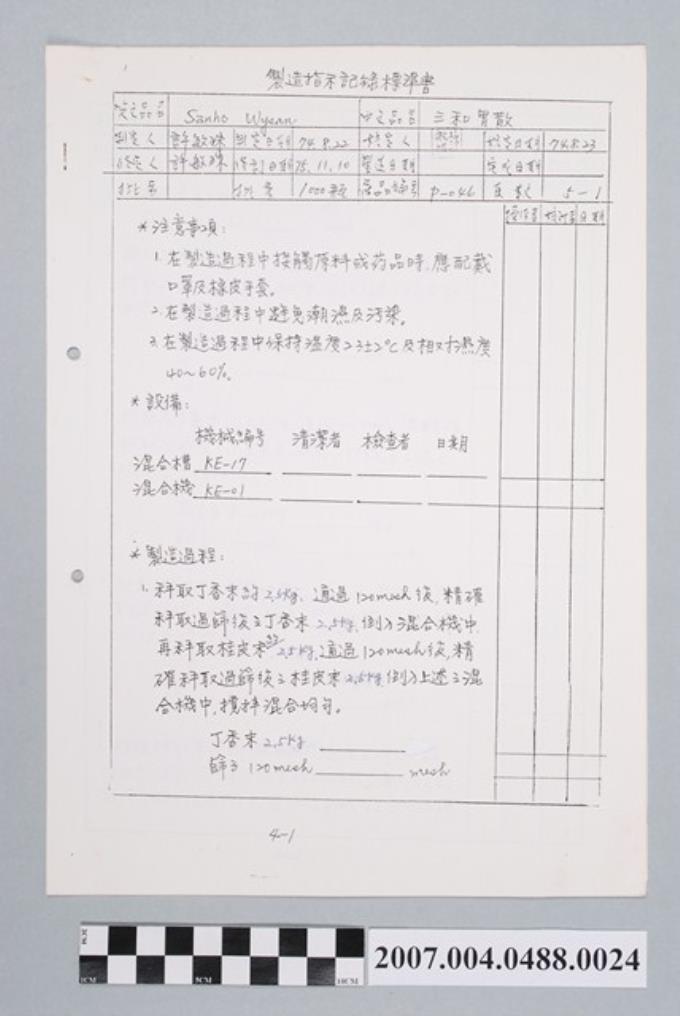 製造指示記錄標準書
英文品名 Sanho Wysan 中文品名 三和胃散
制定人 許敏珠 制定日期 74.8.22 核定人 核定日期 74.8.23
修定人 許敏珠 修訂日期 75.11.10 製造日期 完成日期
批号 批量 1000顆 產品編号 P-046 頁數 5-1
操作者 檢討者 日期
*注意事項:
1.在製造過程中接觸原料或药品時,應配戴
口罩及橡皮手套。
2.在製造過程中避免潮濕及污染。
3.在製造過程中保持溫度23±2°C及相对濕度
40~60%。
*設備:
機械編号 清潔者 檢查者 日期
混合槽 KE-17
混合機 KE-01
*製造過程:
1.秤取丁香末約2.5kg,通過120mesh後,精確
秤取過篩後之丁香末2.5kg,倒入混合機中,
再秤取桂皮末約2.5kg,通過120mesh後,精
確秤取過篩後之桂皮末2.5kg,倒入上述之混
合機中,攪拌混合均勻。
丁香末2.5kg
篩号120mesh mesh
4-1
1CM 5CM 10CM
2007.004.0488.0024